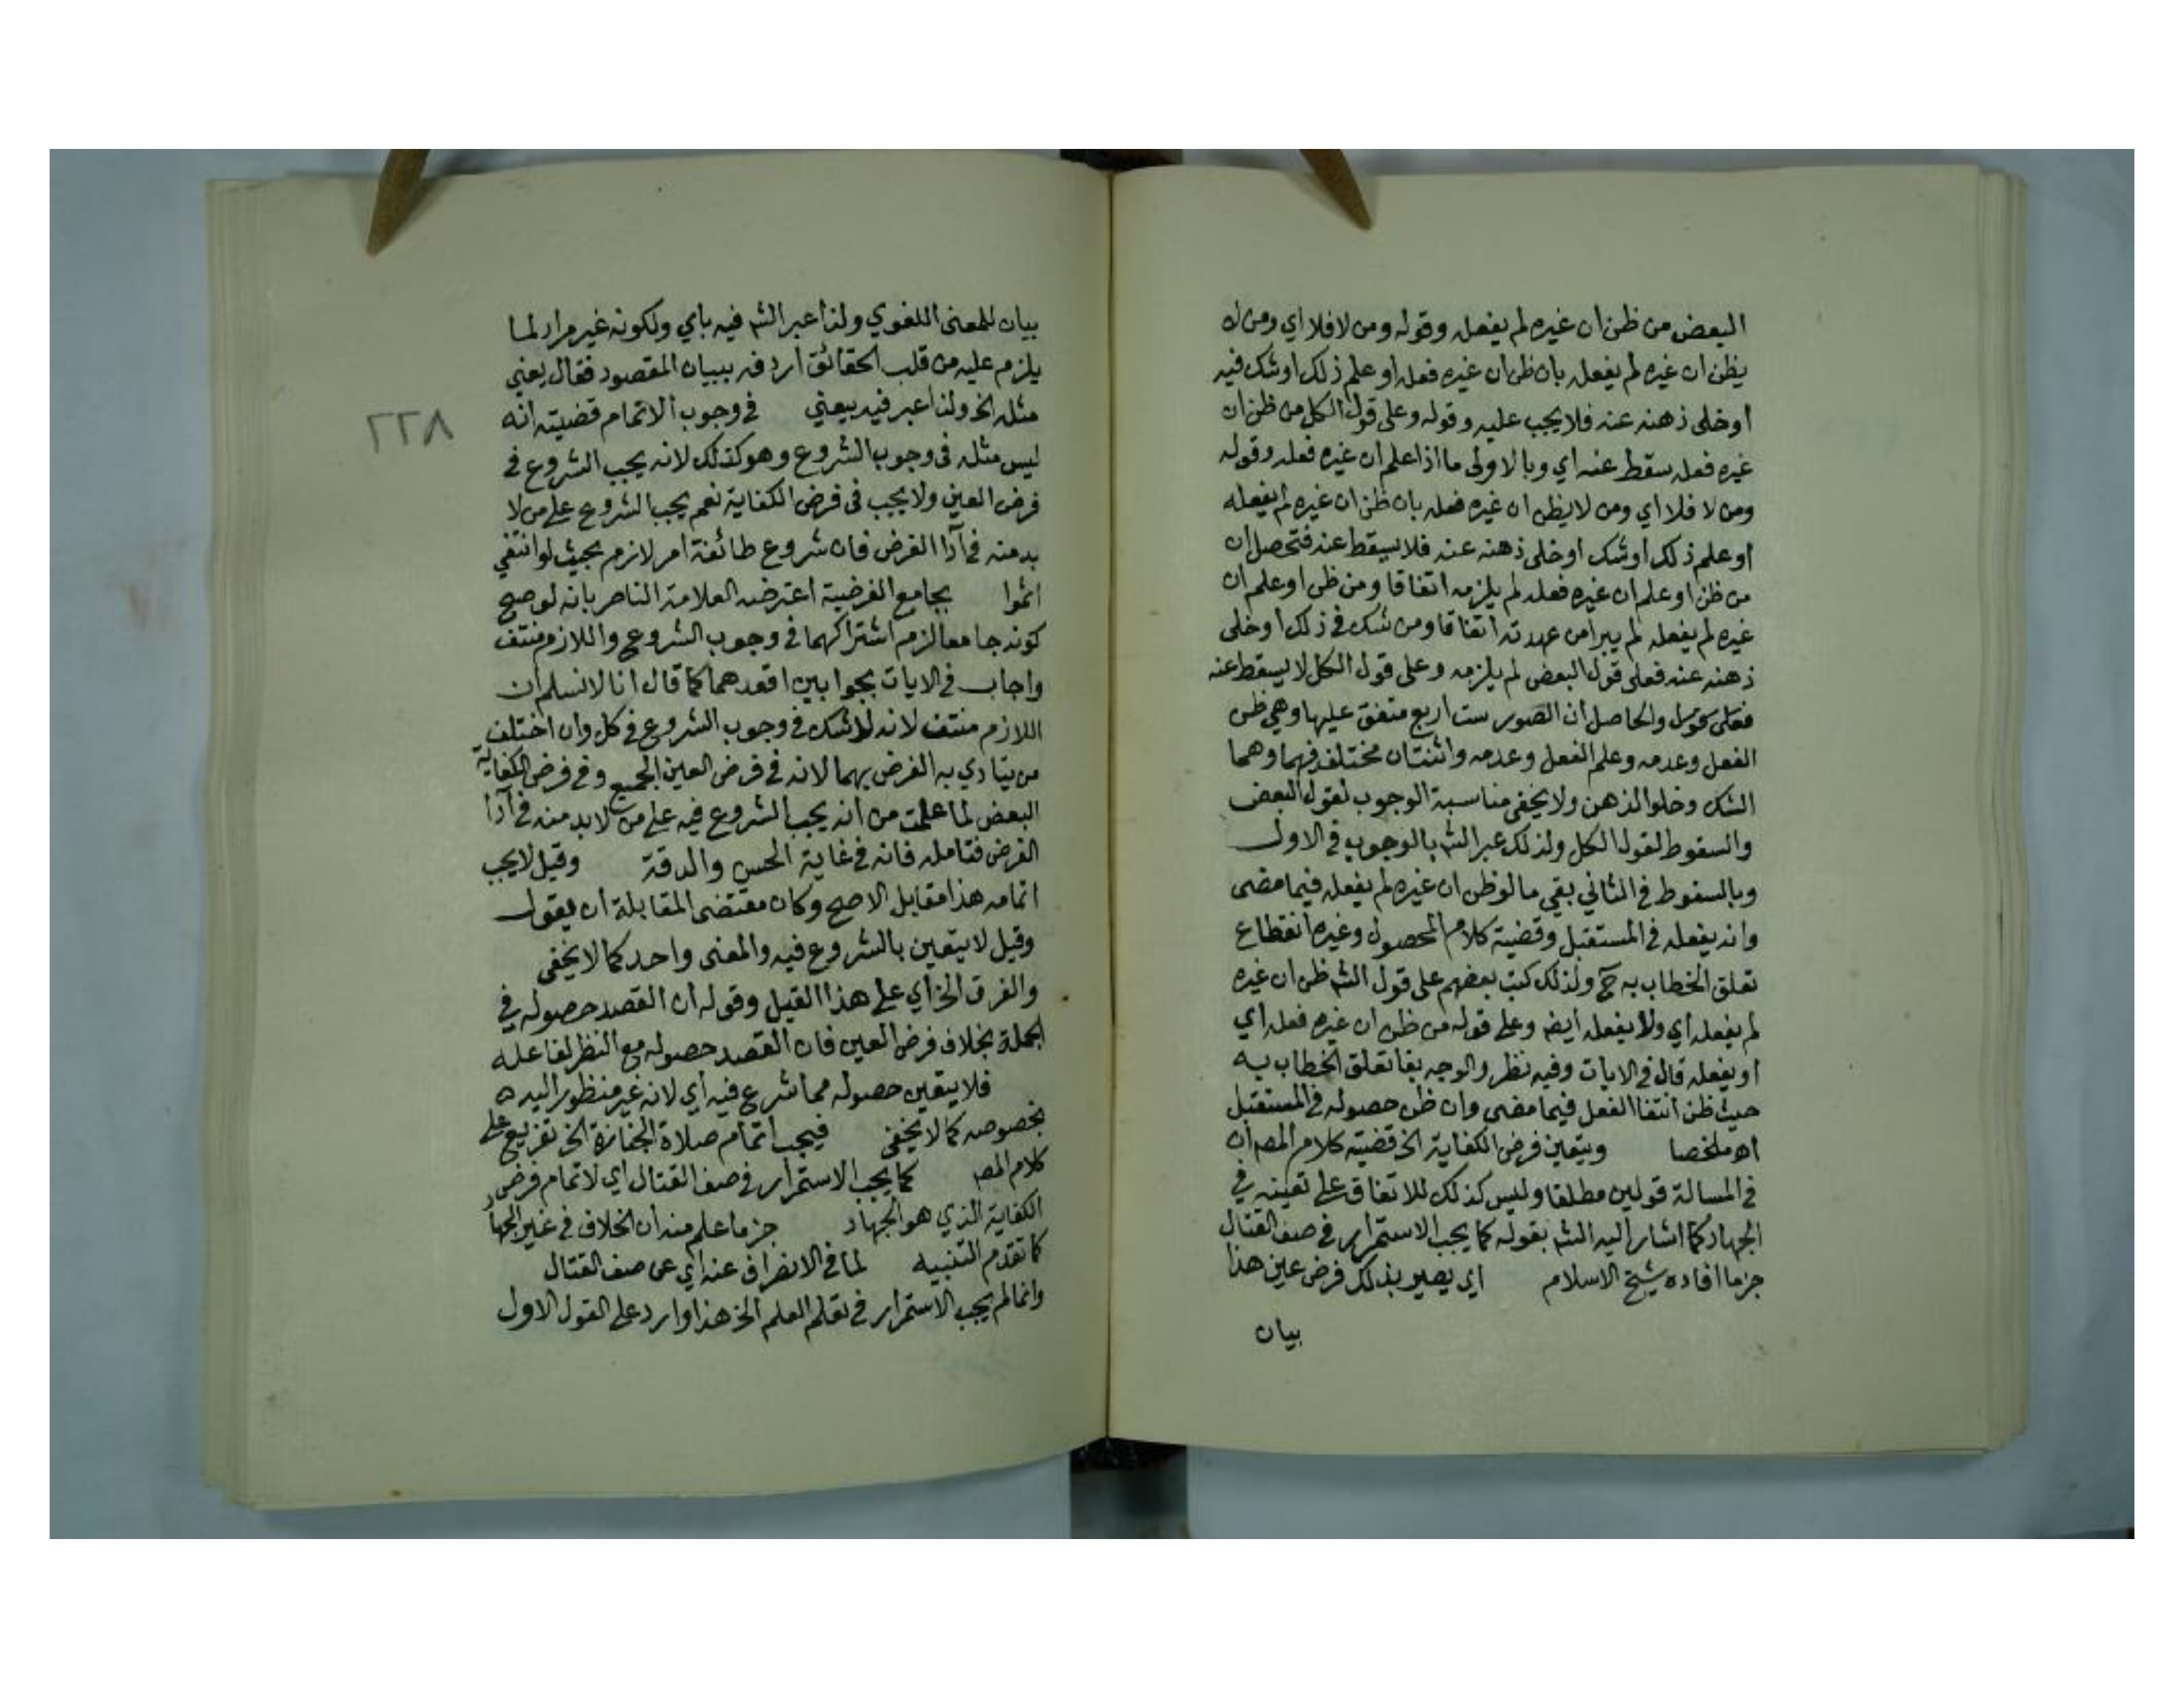 البعض من ظن ان غيره لم يفعله وقوله ومن لا فلا اي ومن لم
يظن ان غيره لم يفعله بان ظن ان غيره فعله او علم ذلك او شك فيه
او خلى ذهنه عنه فلا يجب عليه وقوله وعلى قول الكل من ظن ان
غيره فعله سقط عنه اي وبالاولى ما اذا علم ان غيره فعله وقوله
ومن لا فلا اي ومن لا يظن ان غيره فعله بان ظن ان غيره لم يفعله
او علم ذلك او شك او خلى ذهنه عنه فلا يسقط عنه فتحصل ان
من ظن او علم ان غيره فعله لم يلزمه اتفاقا ومن ظن او علم ان
غيره لم يفعله لم يبرا من عهدته اتفاقا ومن شك في ذلك او خلى
ذهنه عنه فعلى قول البعض لم يلزمه وعلى قول الكل لا يسقط عنه
والحاصل ان الصور ست اربع متفق عليها وهي ظن
الفعل وعدمه وعلم الفعل وعدمه واثنتان مختلف فيهما وهما
الشك وخلو الذهن ولا يخفى مناسبة الوجوب لقول البعض
والسقوط لقول الكل ولذلك عبر الشـ بالوجوب في الاول
وبالسقوط في الثاني بقي ما لو ظن ان غيره لم يفعله فيما مضى
وانه يفعله في المستقبل وقضية كلام المحصول وغيره انقطاع
تعلق الخطاب به ح ولذلك كتب بعضهم على قول الشـ ظن ان غيره
لم يفعله اي ولا يفعله ايضا وعلى قوله من ظن ان غيره فعله اي
او يفعله قال في الايات وفيه نظر والوجه بقا تعلق الخطاب به
حيث ظن انتفا الفعل فيما مضى وان ظن حصوله في المستقبل
اه ملخصا ويتعين فرض الكفاية الخ قضية كلام المصـ ان
في المسالة قولين مطلقا وليس كذلك للاتفاق على تعينه في
الجهاد كما اشار اليه الشـ بقوله كما يجب الاستمرار في صف القتال
جزما افاده شيخ الاسلام اي يصير بذلك فرض عين هذا
بيان
بيان للمعنى اللغوي ولذا عبر الشـ فيه باي ولكونه غير مراد لما
يلزم عليه من قلب الحقائق اردفه ببيان المقصود فقال يعني
مثله الخ ولذا عبر فيه بيعني في وجوب الاتمام قضيته انه
ليس مثله في وجوب الشروع وهو كذلك لانه يجب الشروع في
فرض العين ولا يجب في فرض الكفاية نعم يجب الشروع على من لا
بد منه في آدا الفرض فان شروع طائفة امر لازم بحيث لو انتفي
اثموا بجامع الفرضية اعترضه العلامة الناصر بانه لو صح
كونه جامعا لزم اشتراكهما في وجوب الشروع واللازم منتف
واجاب في الايات بجوابين اقعدهما كما قال انا لا نسلم ان
اللازم منتف لانه لا شك في وجوب الشروع في كل وان اختلف
من يتادي به الفرض بهما لانه في فرض العين الجميع وفي فرض الكفاية
البعض لما علمت من انه يجب الشروع فيه على من لا بد منه في آدا
الفرض فتامله فانه في غاية الحسن والدقة وقيل لا يجب
اتمامه هذا مقابل الاصح وكان مقتضى المقابلة ان يقول
وقيل لا يتعين بالشروع فيه والمعنى واحد كما لا يخفى
والفرق الخ اي على هذا القيل وقوله ان القصد حصوله في
الجملة بخلاف فرض العين فان القصد حصوله مع النظر لفاعله
فلا يتعين حصوله مما شرع فيه اي لانه غير منظور اليه ه
بخصوصه كما لا يخفى فيجب اتمام صلاة الجنازة الخ تفريع على
كلام المصـ كما يجب الاستمرار في صف القتال اي لاتمام فرض
الكفاية الذي هو الجهاد جزما علم منه ان الخلاف في غير الجهاد
كما تقدم التنبيه لما في الانصراف عنه اي عن صف القتال
وانما لم يجب الاستمرار في تعلم العلم الخ هذا وارد على القول الاول
٢٢٨